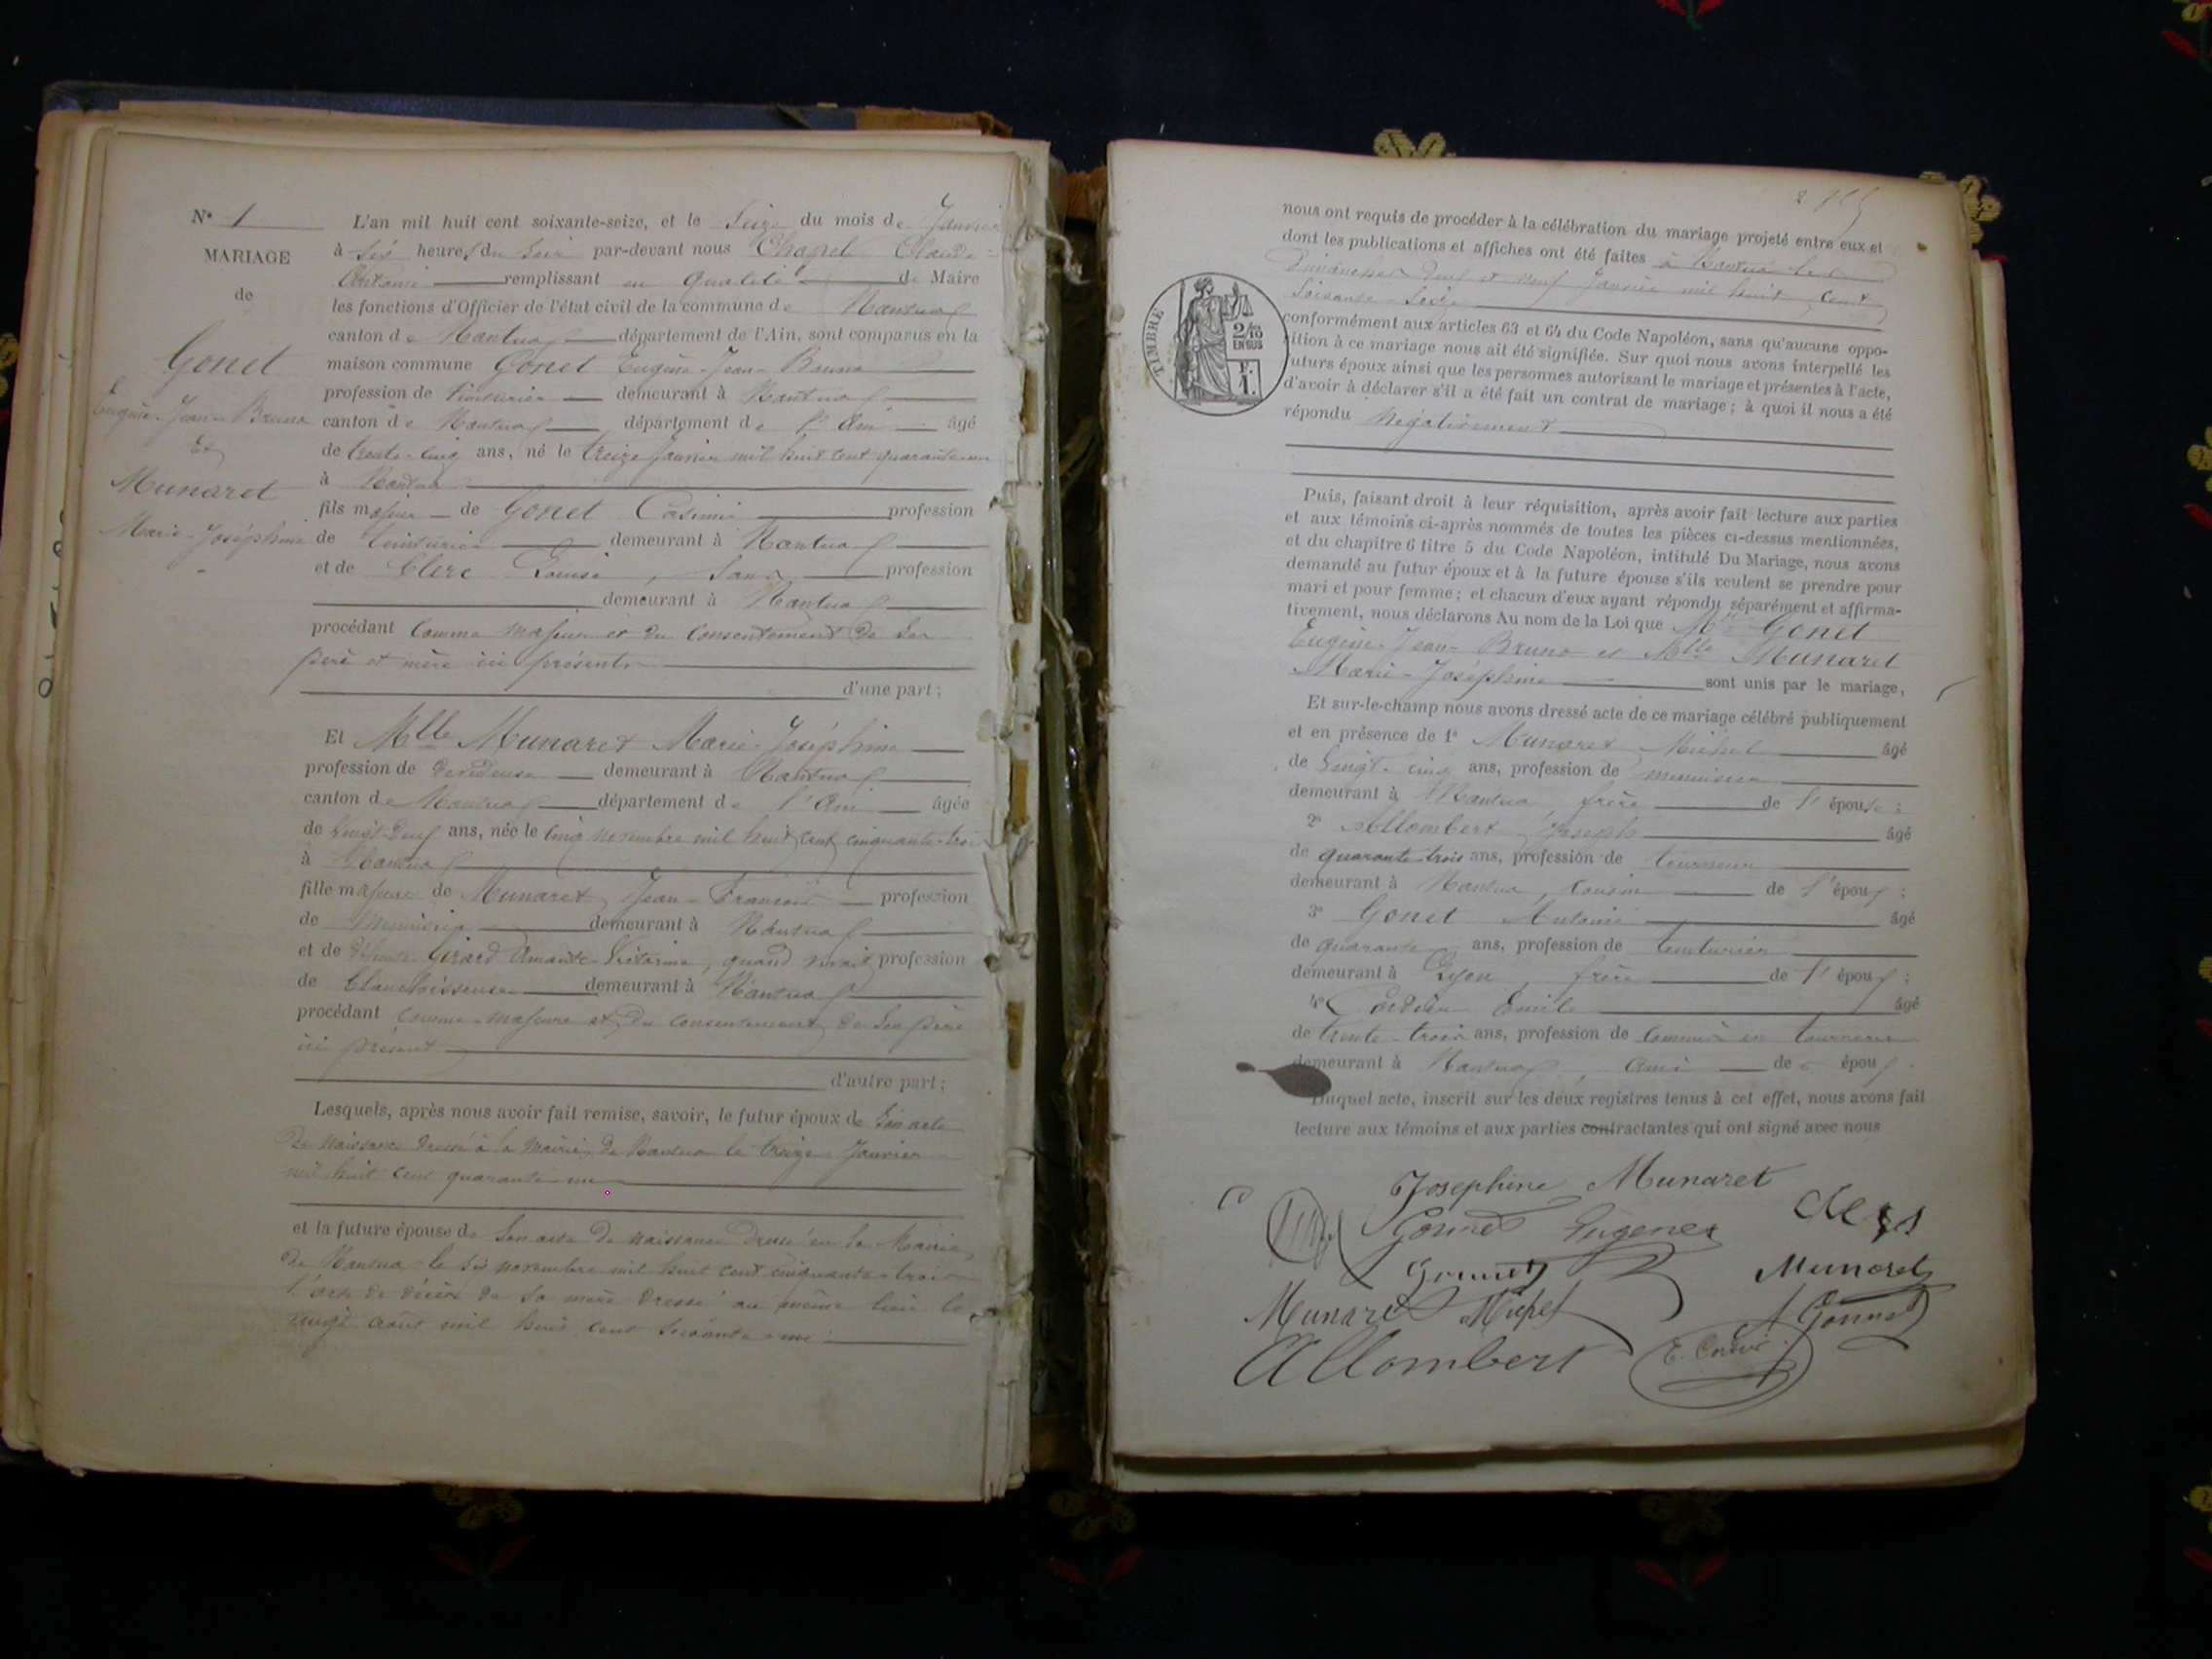 N° 1
MARIAGE
de
Gonet
Eugène-Jean-Bruno
Et
Munaret
Marie-Joséphine
L'an mil huit cent soixante-seize, et le Seize du mois de Janvier
à six heures du soir par-devant nous Chapel Claude=
Antoine remplissant en qualité de Maire
les fonctions d'Officier de l'état civil de la commune de Nantua
canton de Nantua département de l'Ain, sont comparus en la
maison commune Gonet Eugène-Jean-Bruno
profession de teinturier demeurant à Nantua
canton de Nantua département de l'Ain âgé
de trente-cinq ans, né le treize Janvier mil huit cent quarante-un
à Nantua
fils majeur de Gonet Casimir profession
de teinturier demeurant à Nantua
et de Clerc Louise, sans profession
demeurant à Nantua
procédant comme majeur et du consentement de ses
père et mère ici présents
d'une part;
Et Mlle Munaret Marie-Joséphine
profession de dévideuse demeurant à Nantua
canton de Nantua département de l'Ain âgée
de vingt-deux ans, née le cinq novembre mil huit cent cinquante-trois
à Nantua
fille majeure de Munaret Jean-François profession
de menuisier demeurant à Nantua
et de défunte Girard Amante-Victorine, quand vivait profession
de blanchisseuse demeurant à Nantua
procédant comme majeure et du consentement de son père
ici présent
d'autre part;
Lesquels, après nous avoir fait remise, savoir, le futur époux de son acte
de naissance dressé à la mairie de Nantua le treize Janvier
mil huit cent quarante-un
et la future épouse de son acte de naissance dressé en la Mairie
de Nantua le six novembre mil huit cent cinquante-trois
l'acte de décès de sa mère dressé au même lieu le
vingt août mil huit cent soixante-un
2
nous ont requis de procéder à la célébration du mariage projeté entre eux et
dont les publications et affiches ont été faites à Nantua les
Dimanches deux et neuf Janvier mil huit cent
soixante-seize
TIMBRE
2/10
EN SUS
F.
1.
conformément aux articles 63 et 64 du Code Napoléon, sans qu'aucune oppo-
ition à ce mariage nous ait été signifiée. Sur quoi nous avons interpellé les
uturs époux ainsi que les personnes autorisant le mariage et présentes à l'acte,
d'avoir à déclarer s'il a été fait un contrat de mariage; à quoi il nous a été
répondu négativement
Puis, faisant droit à leur réquisition, après avoir fait lecture aux parties
et aux témoins ci-après nommés de toutes les pièces ci-dessus mentionnées,
et du chapitre 6 titre 5 du Code Napoléon, intitulé Du Mariage, nous avons
demandé au futur époux et à la future épouse s'ils veulent se prendre pour
mari et pour femme; et chacun d'eux ayant répondu séparément et affirma-
tivement, nous déclarons Au nom de la Loi que Mr Gonet
Eugène-Jean-Bruno et Mlle Munaret
Marie-Joséphine sont unis par le mariage,
Et sur-le-champ nous avons dressé acte de ce mariage célébré publiquement
et en présence de 1° Munaret Michel âgé
de vingt-cinq ans, profession de menuisier
demeurant à Nantua, frère de l'épouse;
2° Allombert Joseph âgé
de quarante-trois ans, profession de tourneur
demeurant à Nantua, cousin de l'épou;
3° Gonet Antoine âgé
de quarante ans, profession de teinturier
demeurant à Lyon, frère de l'épou;
4° Cordier Emile âgé
de trente-trois ans, profession de commis en tournerie
demeurant à Nantua, ami de épou
Duquel acte, inscrit sur les deux registres tenus à cet effet, nous avons fait
lecture aux témoins et aux parties contractantes qui ont signé avec nous
Josephine Munaret
Gonnet Eugene
Gonnet
Munaret
Munaret Michel
A Gonnet
Allombert
E. Cordier